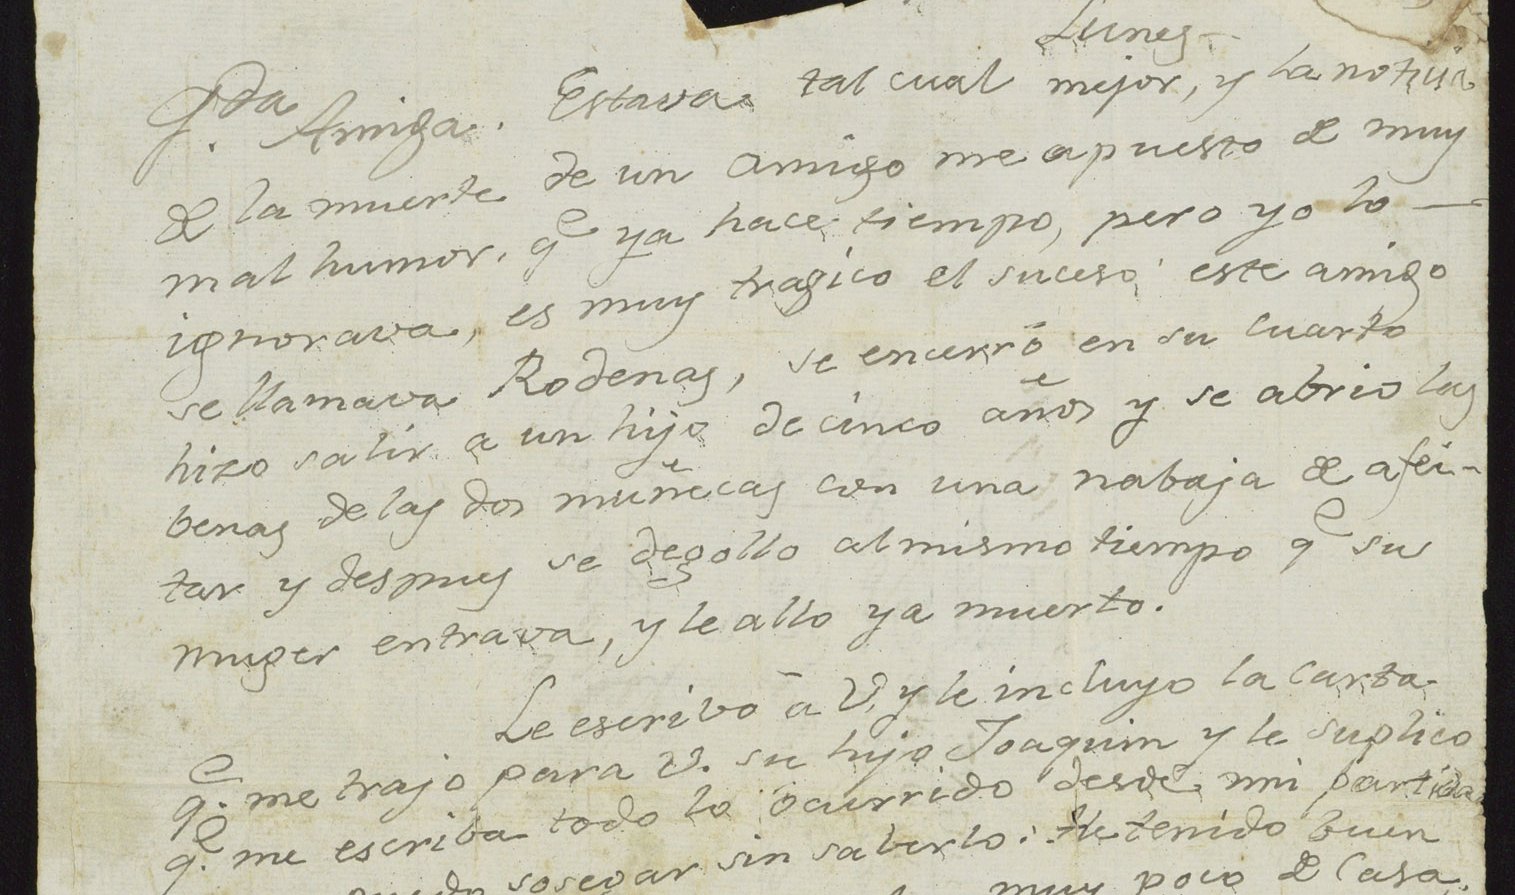 Lunes
Qda Amiga. Estava tal cual mejor, y la noticia
de la muerte de un amigo me a puesto de muy
mal humor, qe ya hace tiempo, pero yo lo
ignorava, es muy tragico el suceso este amigo
se llamava Rodenas, se encerró en su cuarto
hizo salir a un hijo de cinco años y se abrio las
benas de las dos muñecas con una nabaja de afei-
tar y despues se degollo al mismo tiempo qe su
muger entrava, y le allo ya muerto.
Le escribo á V. y le incluyo la carta
qe. me trajo para V. su hijo Joaquim y le suplico
qe. me escriba todo lo ocurrido desde mi partida
puedo sosegar sin saberlo. He tenido buen
muy poco de Casa.